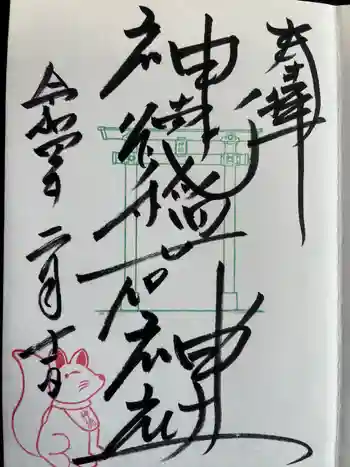 奉拝
神徳稲荷神社
令和四年二月